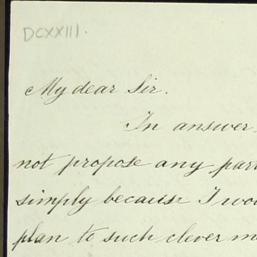 DCXXIII.
My dear Sir.
In answer
not propose any par
simply because I wou
plan to such clever m